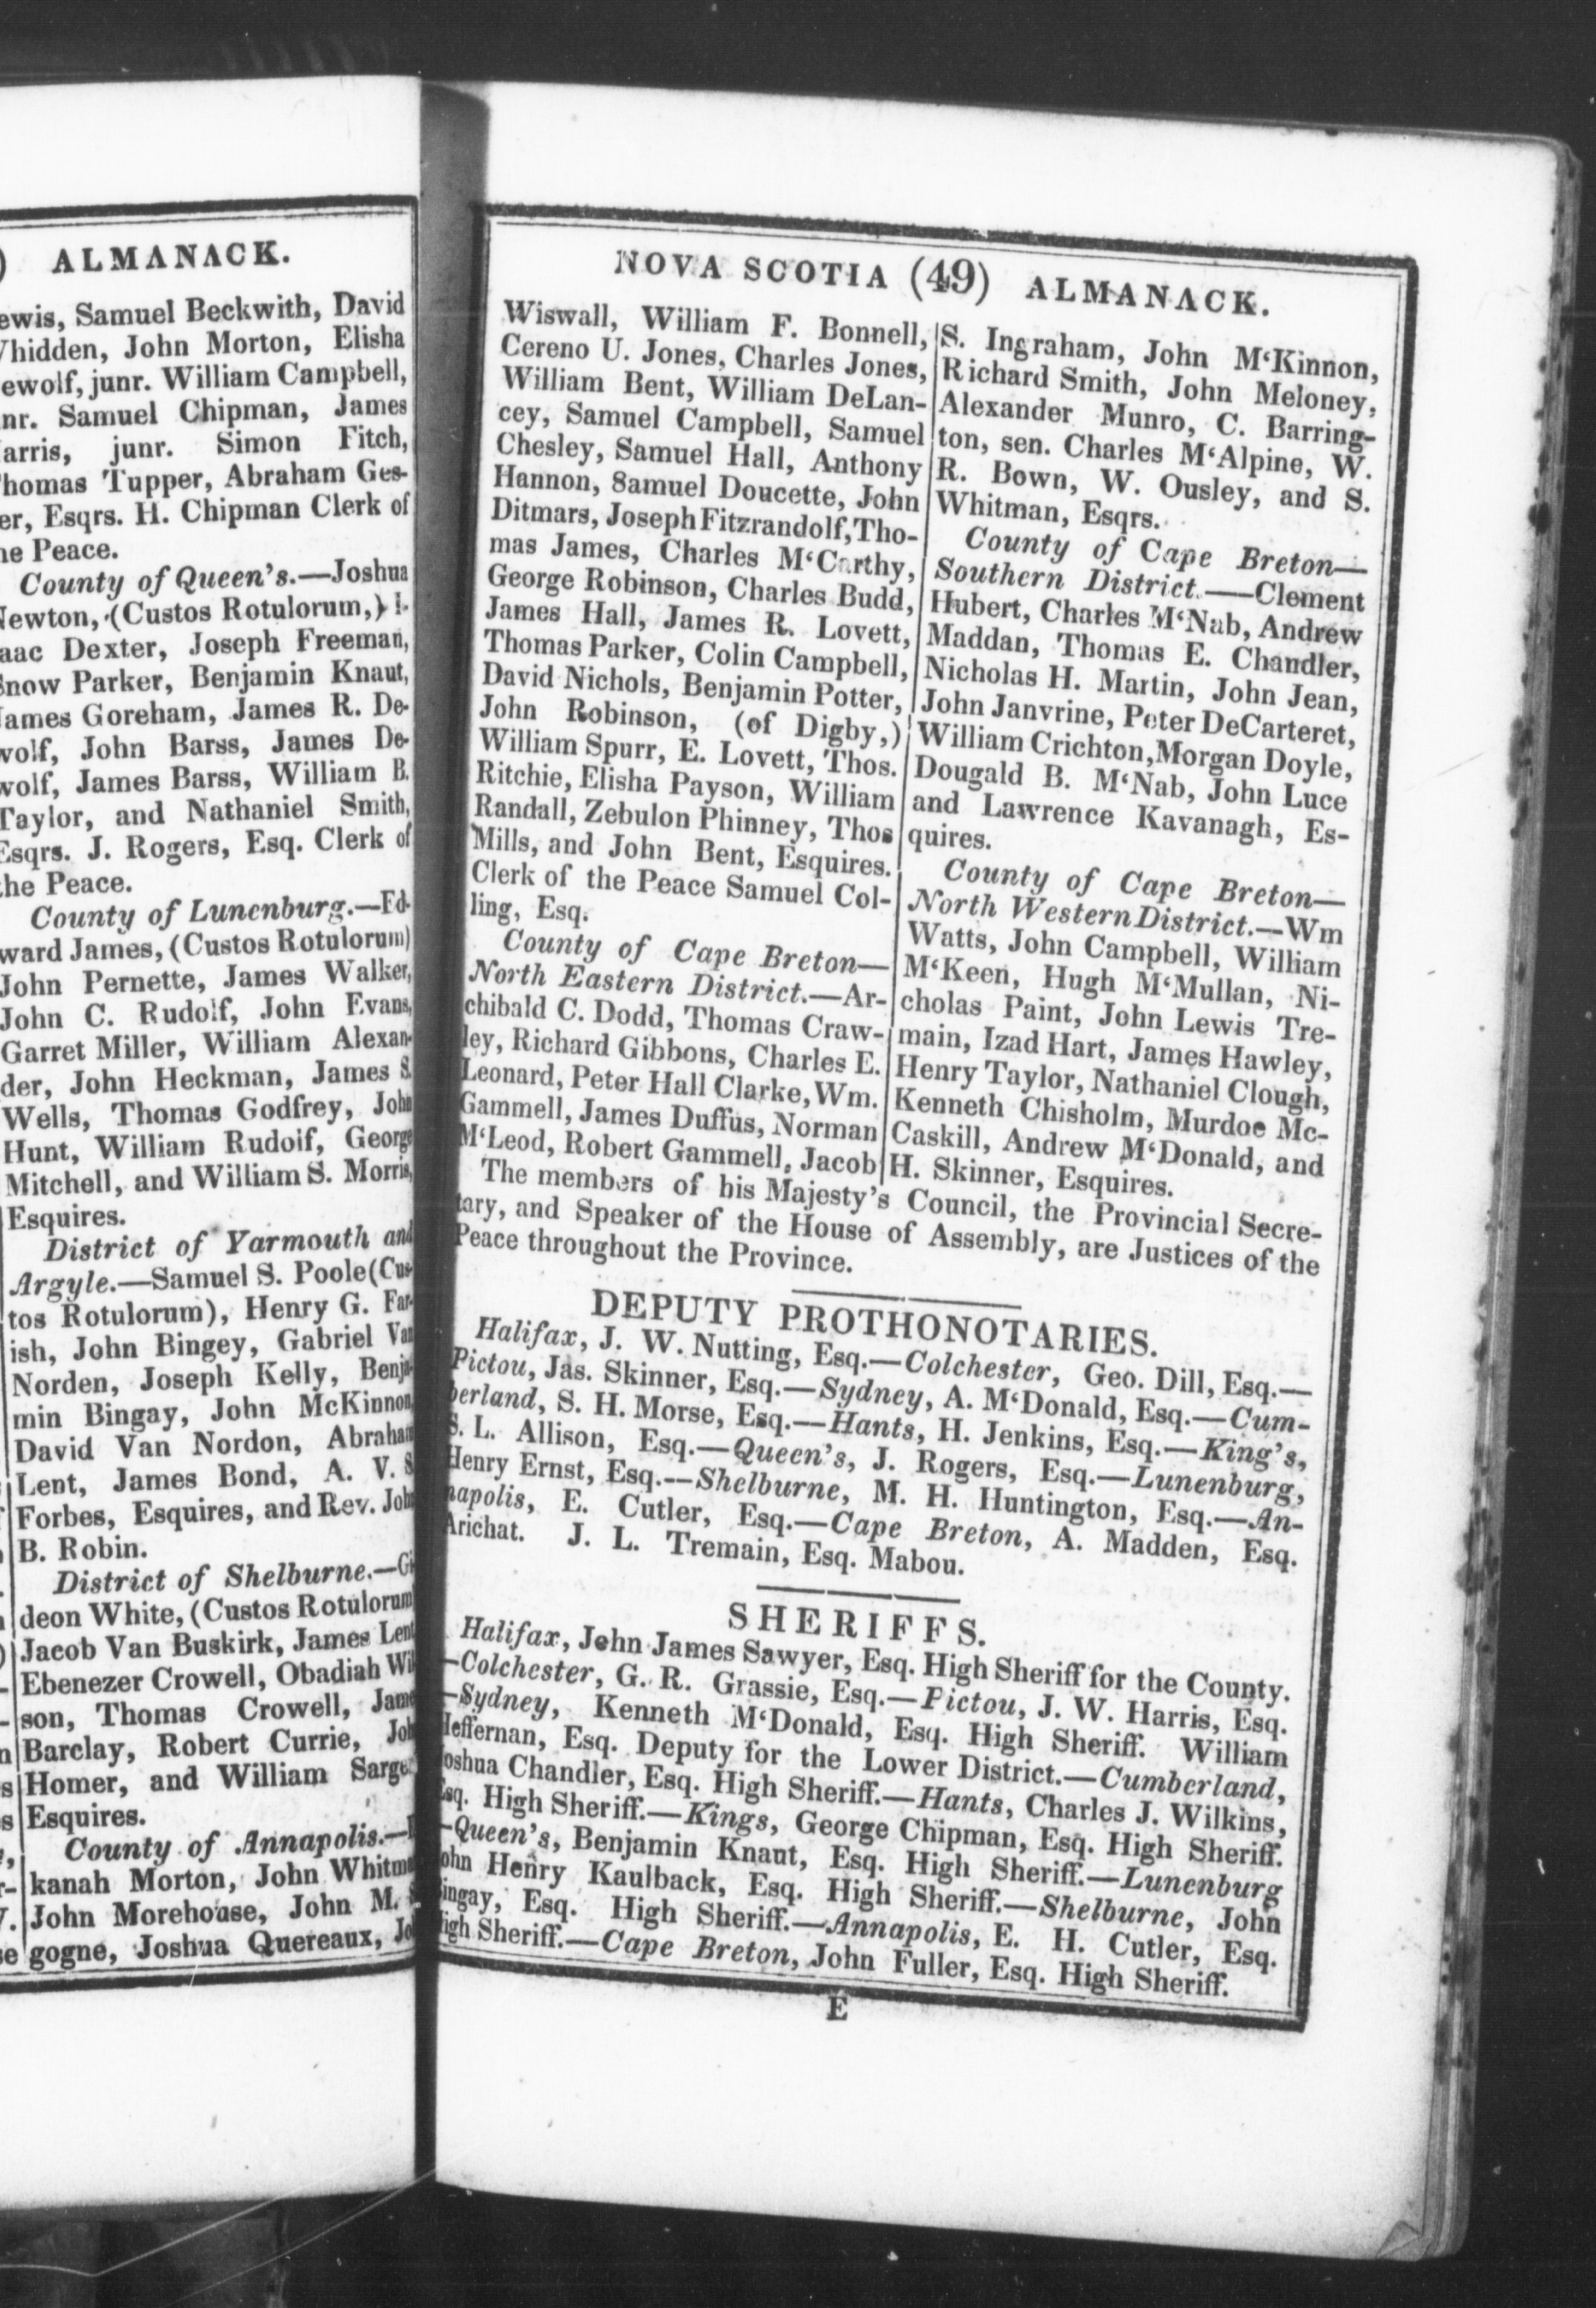 ALMANACK.
Samuel Beckwith, David
John Morton, Elisha
junr. William Campbell,
Samuel Chipman, James
junr. Simon Fitch,
Tupper, Abraham Ges-
Esqrs. H. Chipman Clerk of
Peace.
County of Queen's.—Joshua
(Custos Rotulorum,) I-
Dexter, Joseph Freeman,
Parker, Benjamin Knaut,
James Goreham, James R. De-
wolf, John Barss, James De-
wolf, James Barss, William B.
Taylor, and Nathaniel Smith,
Esqrs. J. Rogers, Esq. Clerk of
the Peace.
County of Lunenburg.—Ed-
ward James, (Custos Rotulorum)
John Pernette, James Walker,
John C. Rudolf, John Evans,
Garret Miller, William Alexan-
der, John Heckman, James S.
Wells, Thomas Godfrey, John
Hunt, William Rudolf, George
Mitchell, and William S. Morris,
Esquires.
District of Yarmouth and
Argyle.—Samuel S. Poole (Cus-
tos Rotulorum), Henry G. Far-
ish, John Bingey, Gabriel Van
Norden, Joseph Kelly, Benja-
min Bingay, John McKinnon,
David Van Nordon, Abraham
Lent, James Bond, A. V. S.
Forbes, Esquires, and Rev. John
B. Robin.
District of Shelburne.—Gi-
deon White, (Custos Rotulorum
Jacob Van Buskirk, James Lent
Ebenezer Crowell, Obadiah Wil-
son, Thomas Crowell, James
Barclay, Robert Currie, John
Homer, and William
Esquires.
County of Annapolis.—
kanah Morton, John
John Morehouse, John M.
gogne, Joshua Quereaux,
NOVA SCOTIA (49) ALMANACK.
Wiswall, William F. Bonnell,
Cereno U. Jones, Charles Jones,
William Bent, William DeLan-
cey, Samuel Campbell, Samuel
Chesley, Samuel Hall, Anthony
Hannon, Samuel Doucette, John
Ditmars, Joseph Fitzrandolf, Tho-
mas James, Charles M'Carthy,
George Robinson, Charles Budd,
James Hall, James R. Lovett,
Thomas Parker, Colin Campbell,
David Nichols, Benjamin Potter,
John Robinson, (of Digby,)
William Spurr, E. Lovett, Thos.
Ritchie, Elisha Payson, William
Randall, Zebulon Phinney, Thos
Mills, and John Bent, Esquires.
Clerk of the Peace Samuel Col-
ling, Esq.
County of Cape Breton—
North Eastern District.—Ar-
chibald C. Dodd, Thomas Craw-
ley, Richard Gibbons, Charles E.
Leonard, Peter Hall Clarke, Wm.
Gammell, James Duffus, Norman
M'Leod, Robert Gammell, Jacob
S. Ingraham, John M'Kinnon,
Richard Smith, John Meloney,
Alexander Munro, C. Barring-
ton, sen. Charles M'Alpine, W.
R. Bown, W. Ousley, and S.
Whitman, Esqrs.
County of Cape Breton—
Southern District.—Clement
Hubert, Charles M'Nab, Andrew
Maddan, Thomas E. Chandler,
Nicholas H. Martin, John Jean,
John Janvrine, Peter DeCarteret,
William Crichton, Morgan Doyle,
Dougald B. M'Nab, John Luce
and Lawrence Kavanagh, Es-
quires.
County of Cape Breton—
North Western District.—Wm
Watts, John Campbell, William
M'Keen, Hugh M'Mullan, Ni-
cholas Paint, John Lewis Tre-
main, Izad Hart, James Hawley,
Henry Taylor, Nathaniel Clough,
Kenneth Chisholm, Murdoe Mc-
Caskill, Andrew M'Donald, and
H. Skinner, Esquires.
The members of his Majesty's Council, the Provincial Secre-
tary, and Speaker of the House of Assembly, are Justices of the
Peace throughout the Province.
DEPUTY PROTHONOTARIES.
Halifax, J. W. Nutting, Esq.—Colchester, Geo. Dill, Esq.—
Pictou, Jas. Skinner, Esq.—Sydney, A. M'Donald, Esq.—Cum-
berland, S. H. Morse, Esq.—Hants, H. Jenkins, Esq.—King's,
S. L. Allison, Esq.—Queen's, J. Rogers, Esq.—Lunenburg,
Henry Ernst, Esq.—Shelburne, M. H. Huntington, Esq.—An-
napolis, E. Cutler, Esq.—Cape Breton, A. Madden, Esq.
Arichat. J. L. Tremain, Esq. Mabou.
SHERIFFS.
Halifax, John James Sawyer, Esq. High Sheriff for the County.
—Colchester, G. R. Grassie, Esq.—Pictou, J. W. Harris, Esq.
—Sydney, Kenneth M'Donald, Esq. High Sheriff. William
Heffernan, Esq. Deputy for the Lower District.—Cumberland,
Joshua Chandler, Esq. High Sheriff.—Hants, Charles J. Wilkins,
Esq. High Sheriff.—Kings, George Chipman, Esq. High Sheriff.
—Queen's, Benjamin Knaut, Esq. High Sheriff.—Lunenburg
John Henry Kaulback, Esq. High Sheriff.—Shelburne, John
Bingay, Esq. High Sheriff.—Annapolis, E. H. Cutler, Esq.
High Sheriff.—Cape Breton, John Fuller, Esq. High Sheriff.
E